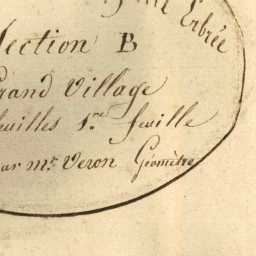 Erbrée
Section B
Grand Village
feuilles 1.re feuille
par mr. Veron Géomètre